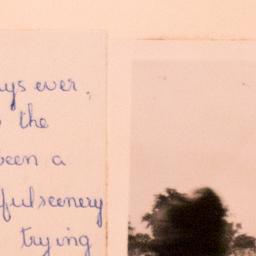 ys ever.
the
been a
ful scenery
trying